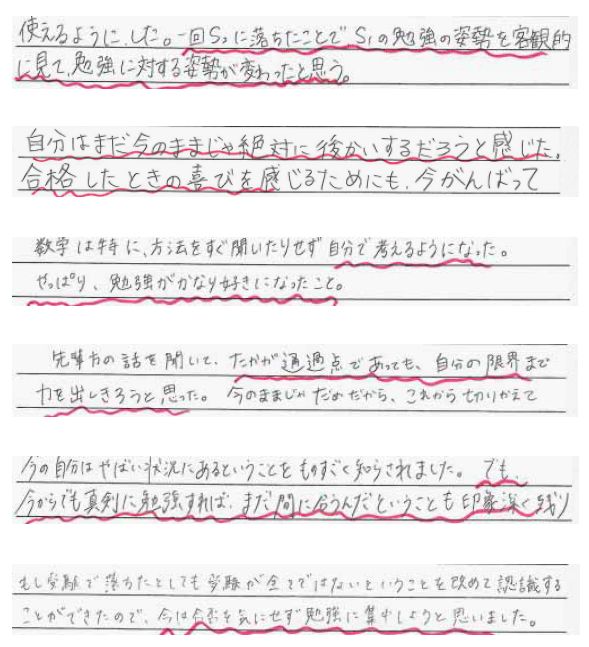 使えるように、した。一回S₂に落ちたことで、S₁の勉強の姿勢を客観的
に見て、勉強に対する姿勢が変わったと思う。
自分はまだ今のままじゃ絶対に後かいするだろうと感じた。
合格したときの喜びを感じるためにも、今がんばって
数学は特に、方法をすぐ聞いたりせず自分で考えるようになった。
やっぱり、勉強がかなり好きになったこと。
先輩方の話を聞いて、たかが通過点であっても、自分の限界まで
力を出しきろうと思った。今のままじゃだめだから、これから切りかえて
今の自分はやばい状況にあるということをものすごく知らされました。でも、
今からでも真剣に勉強すれば、まだ間に合うんだということも印象深く残り
もし受験で落ちたとしても受験が全てではないということを改めて認識する
ことができたので、今は合否を気にせず勉強に集中しようと思いました。